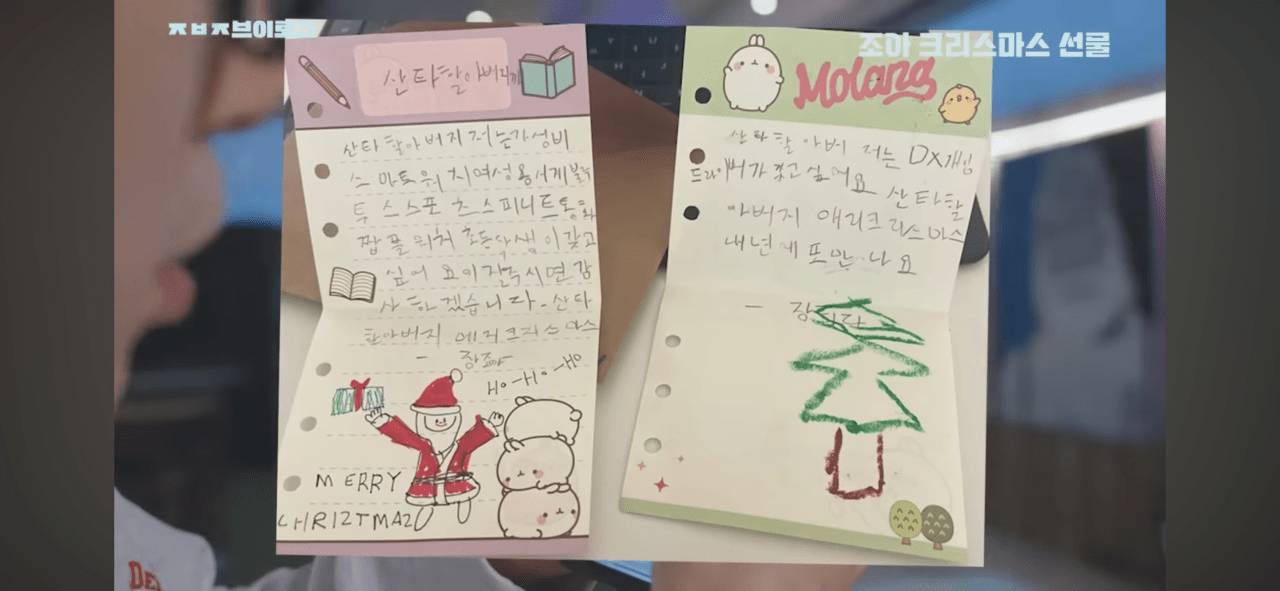 ㅈㅂㅈ브이로그
조아 크리스마스 선물
산타할아버지께
산타할아버지 저는 가성비
스마트워치 여성용 시계 블루
투스 스포츠 스피니트 통화
짭플워치 초등학생이 갖고
싶어요 이잘주시면 감
사하겠습니다. 산타
할아버지 메리크리스마스
- 장조아
HO-HO-HO
MERRY
CHRIZTMAZ
Molang
산타할아버 저는 DX개임
드라이버가 갖고 싶어요 산타할
아버지 애리크리스마스
내년에 포만나요
- 장
DE